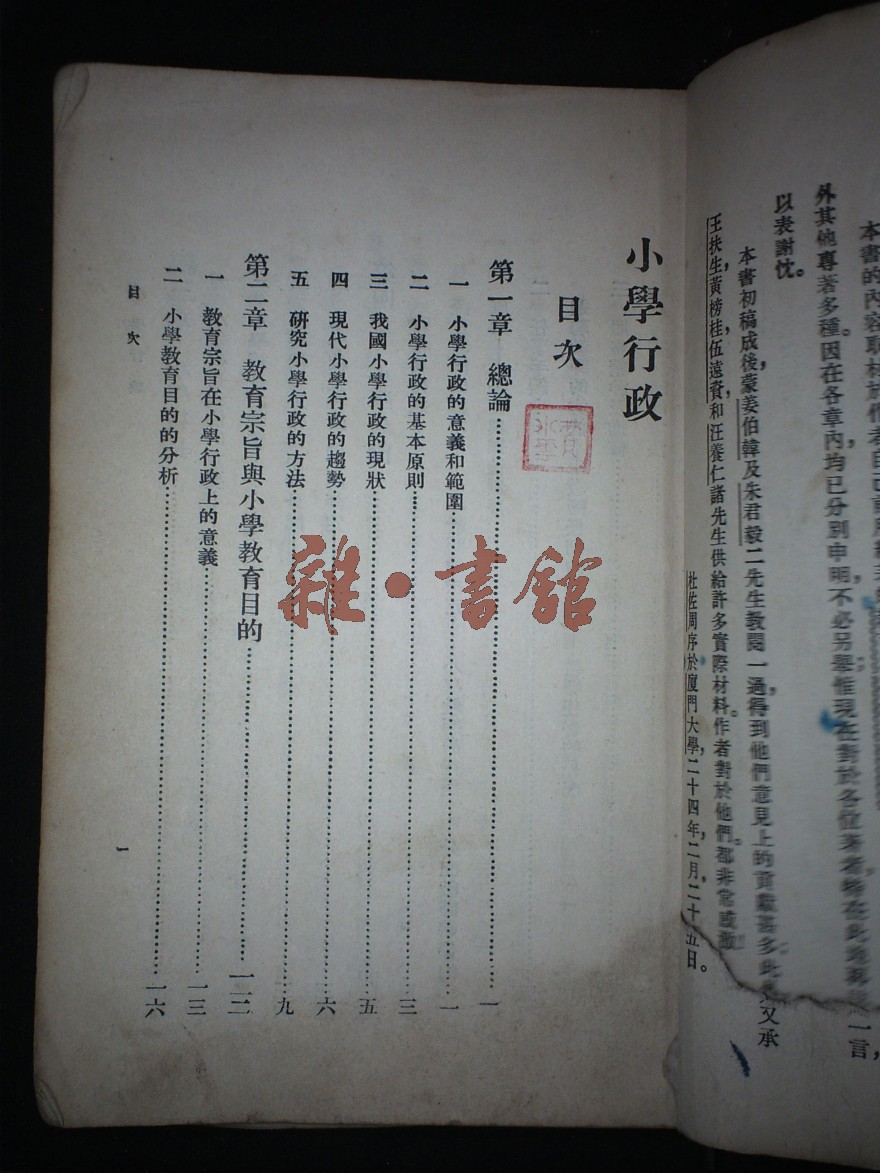 外其他專著多種。因在各章內，均已分別申明，不必另舉；惟現在對於各位著者
以表謝忱。
本書初稿成後，蒙姜伯韓及朱君毅二先生教閱一過，得到他們意見上的貢獻甚多，此
又承
王扶生，黃榜桂，伍遠資，和汪養仁諸先生供給許多實際材料。作者對於他們，都非常感激！
杜佐周序於廈門大學，二十四年，二月，二十五日。
小學行政
目次
第一章　總論……一
一　小學行政的意義和範圍……一
二　小學行政的基本原則……三
三　我國小學行政的現狀……五
四　現代小學行政的趨勢……六
五　研究小學行政的方法……九
第二章　教育宗旨與小學教育目的……一二
一　教育宗旨在小學行政上的意義……一三
二　小學教育目的的分析……一六
目次
一
雜·書館